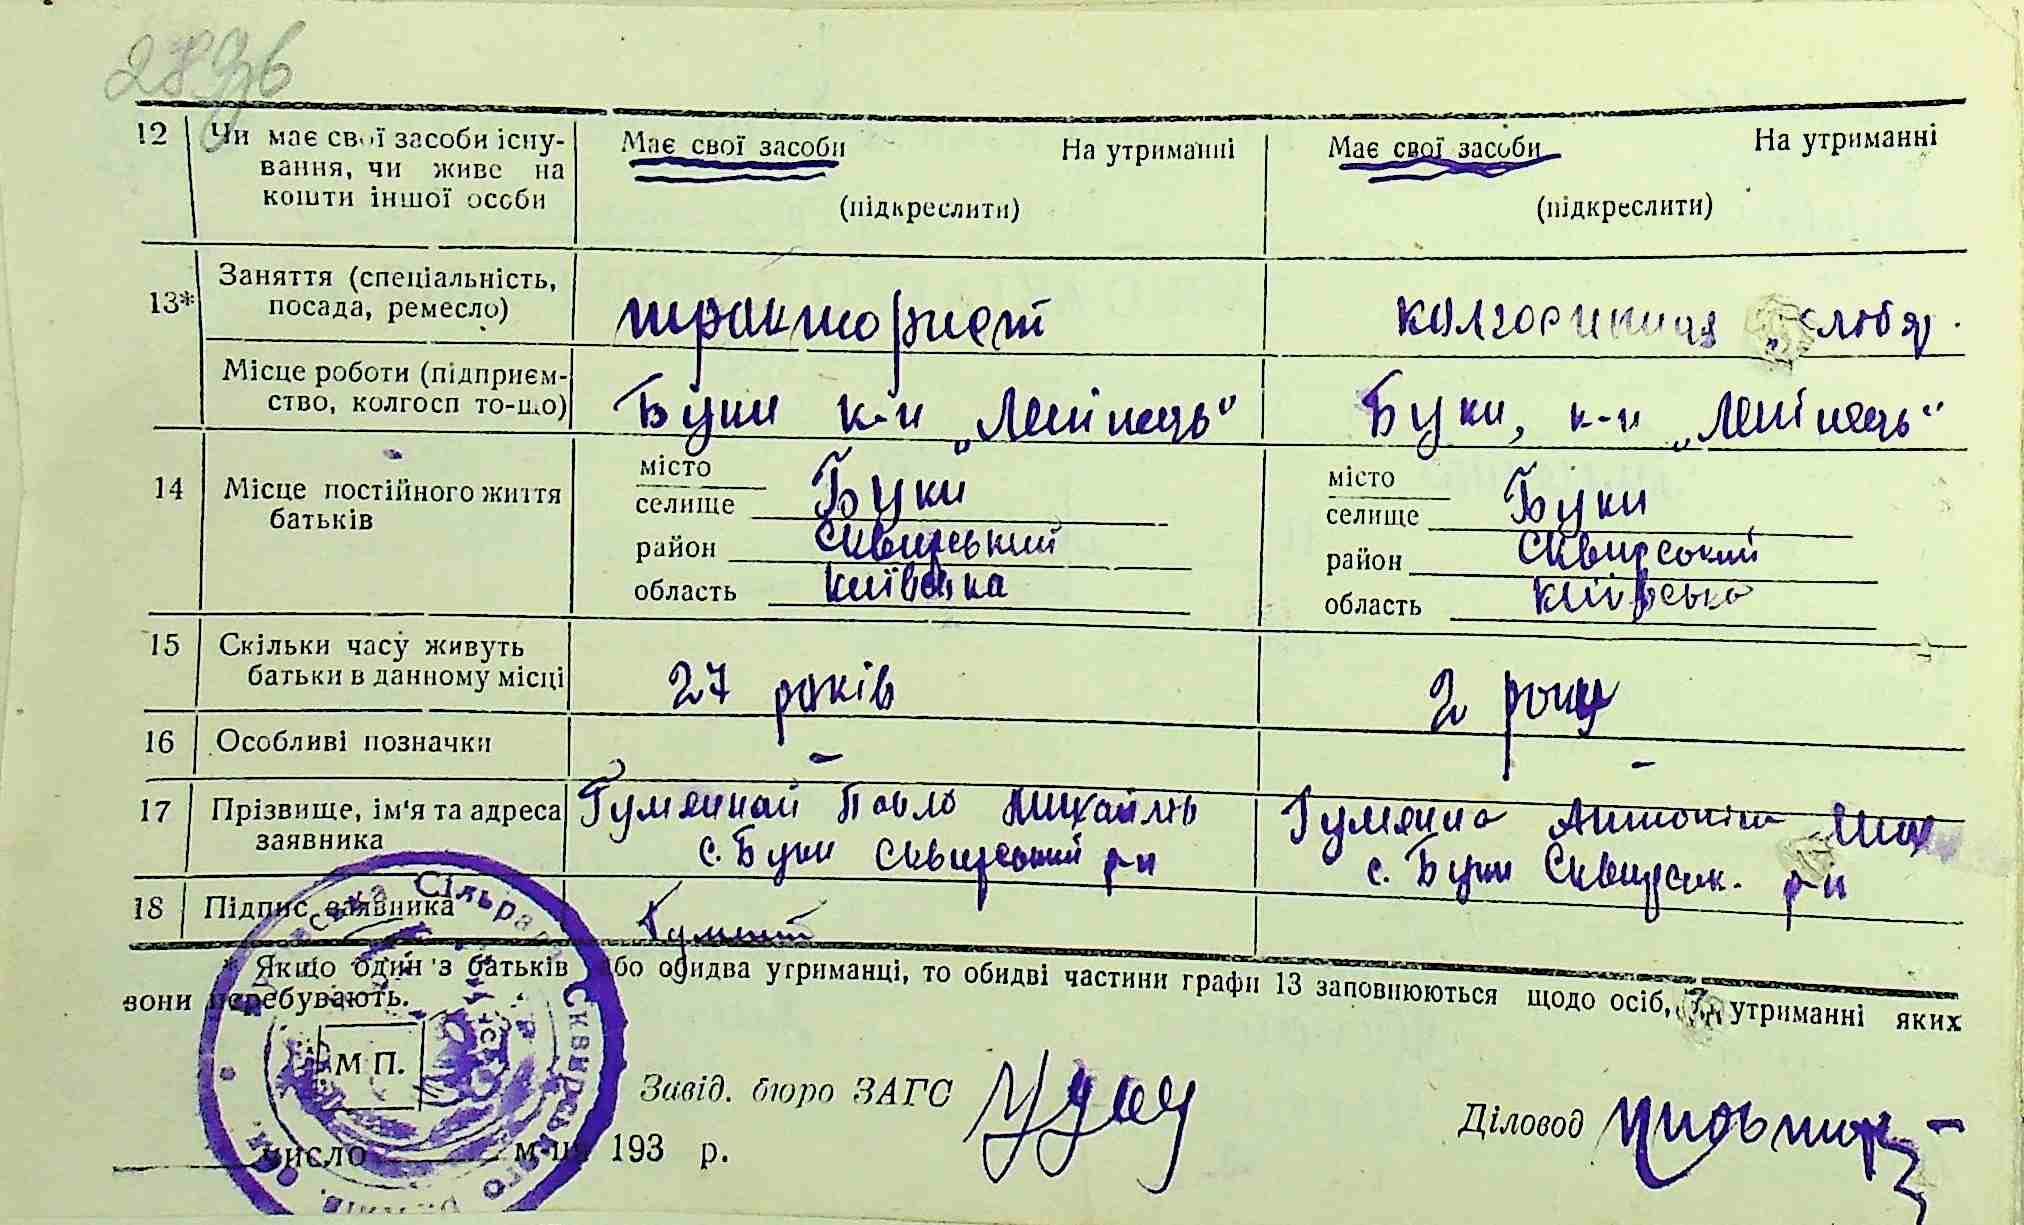 12 Чи має свої засоби існу-
вання, чи живе на
кошти іншої особи
Має свої засоби На утриманні
(підкреслити)
Має свої засоби На утриманні
(підкреслити)
13* Заняття (спеціальність,
посада, ремесло)
тракторист
колгоспниця
Місце роботи (підприєм-
ство, колгосп то-що)
Буки к-п „Ленінець"
Буки, к-п „Ленінець"
14 Місце постійного життя
батьків
місто
селище Буки
район Сквирський
область Київська
місто
селище Буки
район Сквирський
область Київська
15 Скільки часу живуть
батьки в данному місці
27 років
2 роки
16 Особливі позначки
–
–
17 Прізвище, ім'я та адреса
заявника
Гуменний Павло Михайлів
с. Буки Сквирський р-н
Гуменна Антоніна
с. Буки Сквирськ. р-н
18 Підпис заявника
* Якщо один з батьків або обидва утриманці, то обидві частини графи 13 заповнюються щодо осіб, утриманні яких
вони перебувають.
М П.
Завід. бюро ЗАГС
Діловод
число м-ця 193 р.
Сільрада Сквирського